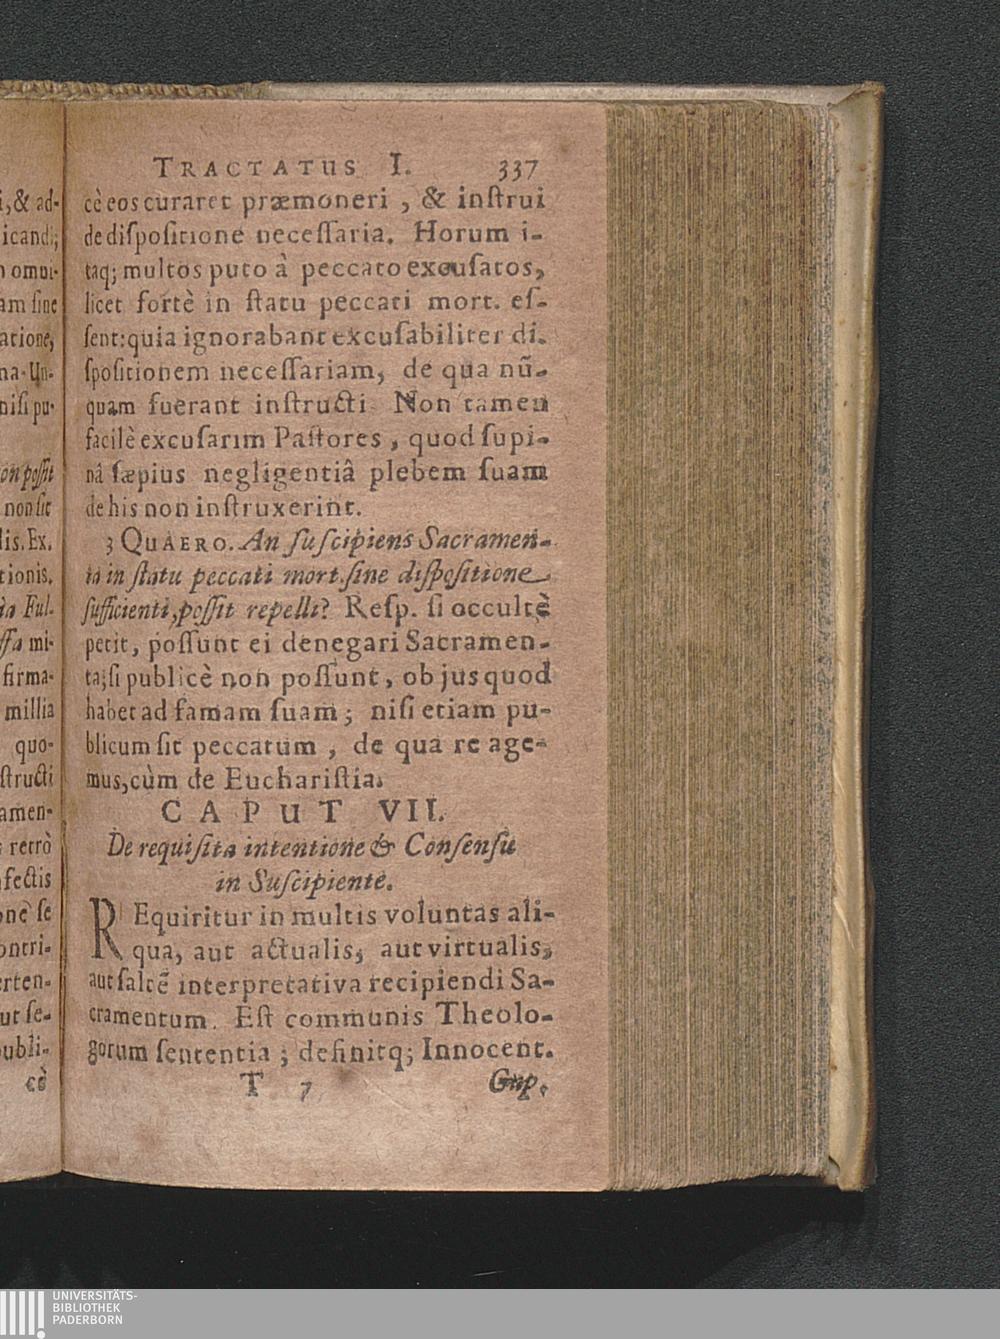 TRACTATUS I. 337
cè eos curaret præmoneri, & inſtrui
de diſpoſitione neceſſaria. Horum i-
taq; multos puto à peccato excuſatos,
licet fortè in ſtatu peccati mort. eſ-
ſent: quia ignorabant excuſabiliter di-
ſpoſitionem neceſſariam, de qua nũ-
quam fuerant inſtructi Non tamen
facilè excuſarim Paſtores, quod ſupi-
nâ ſæpius negligentiâ plebem ſuam
de his non inſtruxerint.
3 QUAERO. An ſuſcipiens Sacramen-
ta in ſtatu peccati mort. ſine diſpoſitione
ſufficienti, poſſit repelli? Reſp. ſi occultè
petit, poſſunt ei denegari Sacramen-
ta; ſi publicè non poſſunt, ob jus quod
habet ad famam ſuam; niſi etiam pu-
blicum ſit peccatum, de qua re age-
mus, cùm de Euchariſtia.
CAPUT VII.
De requiſita intentione & Conſenſu
in Suſcipiente.
REquiritur in multis voluntas ali-
qua, aut actualis, aut virtualis,
aut ſaltẽ interpretativa recipiendi Sa-
cramentum. Eſt communis Theolo-
gorum ſententia; definitq; Innocent.
T 7 Gup.
i, & ad-
icandi;
omni-
am ſine
atione,
na. Un-
niſi pu-
on poſſit
non ſit
lis. Ex.
tionis.
ia Ful-
ſſa mi-
firma-
millia
quo-
ſtructi
amen-
retrò
fectis
one ſe
ontri-
erten-
ut ſe-
publi-
cè
UNIVERSITÄTS-
BIBLIOTHEK
PADERBORN